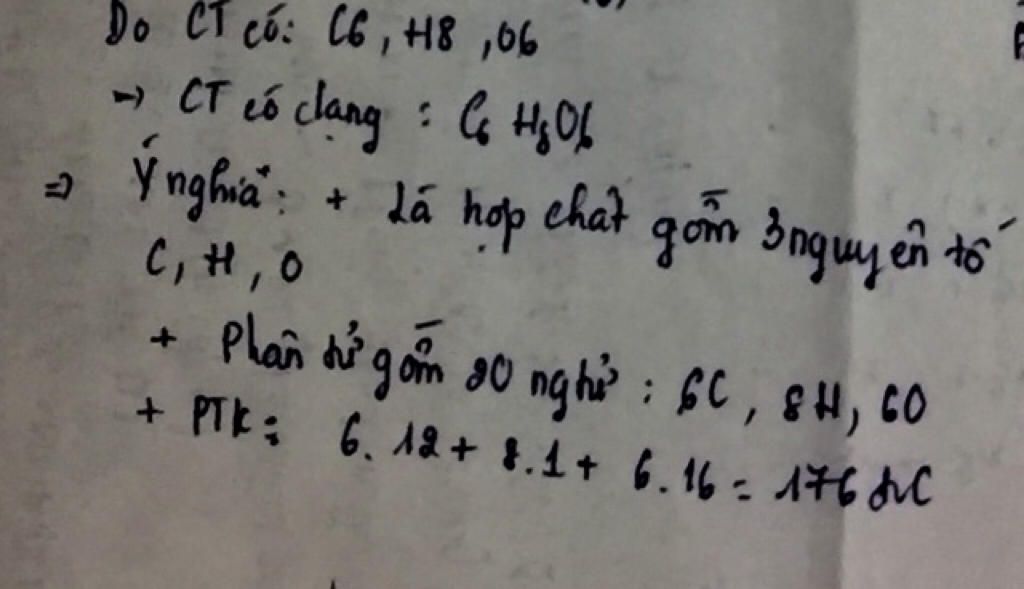 Do CT có: C6, H8, O6
→ CT có dạng : C₆H₈O₆
⇒ Ý nghĩa: + Là hợp chất gồm 3 nguyên tố
C, H, O
+ Phân tử gồm 20 ngtử : 6C, 8H, 6O
+ PTK: 6.12 + 8.1 + 6.16 = 176 đvC